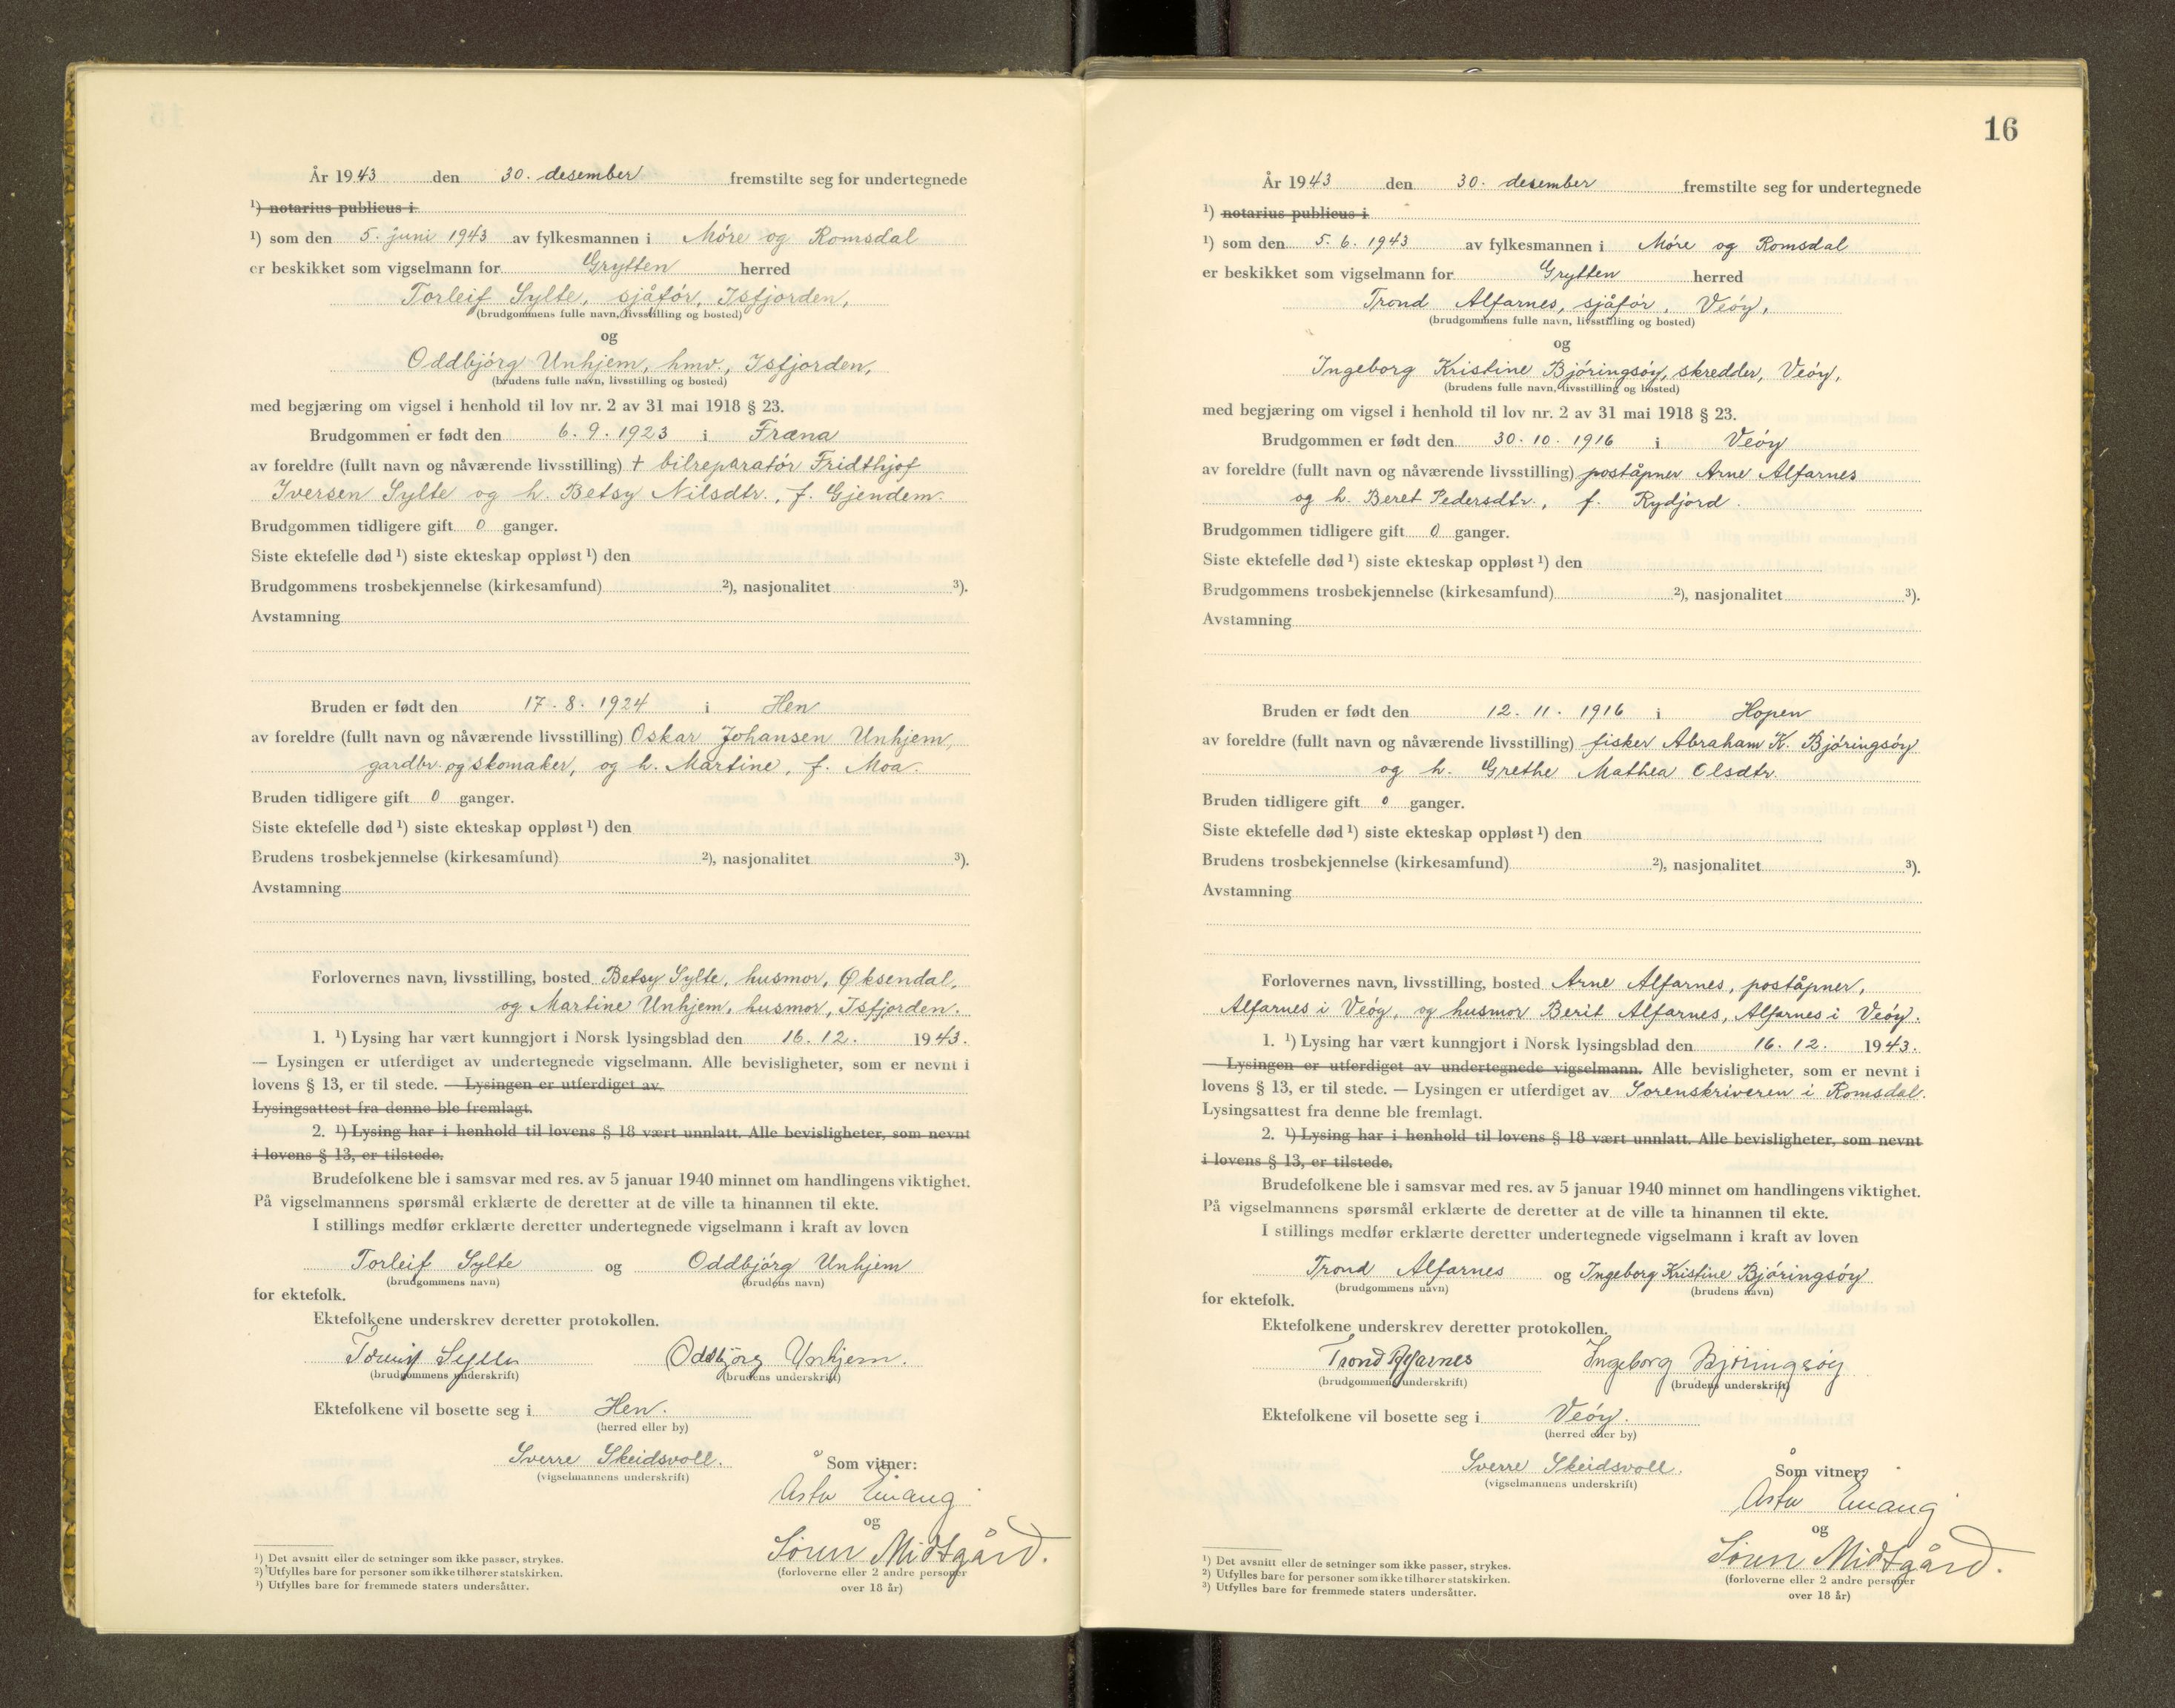 År 1943 den 30. desember fremstilte seg for undertegnede
¹) notarius publicus i
¹) som den 5. juni 1943 av fylkesmannen i Möre og Romsdal
er beskikket som vigselmann for Grytten herred
Torleif Sylte, sjåför, Isfjorden,
(brudgommens fulle navn, livsstilling og bosted)
og
Oddbjörg Unhjem, hmv., Isfjorden,
(brudens fulle navn, livsstilling og bosted)
med begjæring om vigsel i henhold til lov nr. 2 av 31 mai 1918 § 23.
Brudgommen er født den 6. 9. 1923 i Fræna
av foreldre (fullt navn og nåværende livsstilling) + bilreparatör Fridthjof
Iversen Sylte og h. Betsy Nilsdtr., f. Gjendem.
Brudgommen tidligere gift 0 ganger.
Siste ektefelle død ¹) siste ekteskap oppløst ¹) den
Brudgommens trosbekjennelse (kirkesamfund) ²), nasjonalitet ³).
Avstamning
Bruden er født den 17. 8. 1924 i Hen
av foreldre (fullt navn og nåværende livsstilling) Oskar Johansen Unhjem,
gardbr. og skomaker, og h. Martine, f. Moa.
Bruden tidligere gift 0 ganger.
Siste ektefelle død ¹) siste ekteskap oppløst ¹) den
Brudens trosbekjennelse (kirkesamfund) ²), nasjonalitet ³).
Avstamning
Forlovernes navn, livsstilling, bosted Betsy Sylte, husmor, Øksendal,
og Martine Unhjem, husmor, Isfjorden.
1. ¹) Lysing har vært kunngjort i Norsk lysingsblad den 16. 12. 1943.
— Lysingen er utferdiget av undertegnede vigselmann. Alle bevisligheter, som er nevnt i
lovens § 13, er til stede. — Lysingen er utferdiget av
Lysingsattest fra denne ble fremlagt.
2. ¹) Lysing har i henhold til lovens § 18 vært unnlatt. Alle bevisligheter, som nevnt
i lovens § 13, er tilstede.
Brudefolkene ble i samsvar med res. av 5 januar 1940 minnet om handlingens viktighet.
På vigselmannens spørsmål erklærte de deretter at de ville ta hinannen til ekte.
I stillings medfør erklærte deretter undertegnede vigselmann i kraft av loven
Torleif Sylte og Oddbjörg Unhjem
(brudgommens navn) (brudens navn)
for ektefolk.
Ektefolkene underskrev deretter protokollen.
Torleif Sylte Oddbjörg Unhjem.
(brudgommens underskrift) (brudens underskrift)
Ektefolkene vil bosette seg i Hen.
(herred eller by)
Sverre Skeidsvoll. Som vitner:
(vigselmannens underskrift)
Åsta Enang
og
Sören Midtgård.
(forloverne eller 2 andre personer
over 18 år)
¹) Det avsnitt eller de setninger som ikke passer, strykes.
²) Utfylles bare for personer som ikke tilhører statskirken.
³) Utfylles bare for fremmede staters undersåtter.
16
År 1943 den 30. desember fremstilte seg for undertegnede
¹) notarius publicus i
¹) som den 5. 6. 1943 av fylkesmannen i Möre og Romsdal
er beskikket som vigselmann for Grytten herred
Trond Alfarnes, sjåför, Veöy,
(brudgommens fulle navn, livsstilling og bosted)
og
Ingeborg Kristine Björingsöy, skredder, Veöy,
(brudens fulle navn, livsstilling og bosted)
med begjæring om vigsel i henhold til lov nr. 2 av 31 mai 1918 § 23.
Brudgommen er født den 30. 10. 1916 i Veöy
av foreldre (fullt navn og nåværende livsstilling) poståpner Arne Alfarnes
og h. Beret Pedersdtr., f. Rydjord.
Brudgommen tidligere gift 0 ganger.
Siste ektefelle død ¹) siste ekteskap oppløst ¹) den
Brudgommens trosbekjennelse (kirkesamfund) ²), nasjonalitet ³).
Avstamning
Bruden er født den 12. 11. 1916 i Hopen
av foreldre (fullt navn og nåværende livsstilling) fisker Abraham K. Björingsöy
og h. Grethe Mathea Olsdtr.
Bruden tidligere gift 0 ganger.
Siste ektefelle død ¹) siste ekteskap oppløst ¹) den
Brudens trosbekjennelse (kirkesamfund) ²), nasjonalitet ³).
Avstamning
Forlovernes navn, livsstilling, bosted Arne Alfarnes, poståpner,
Alfarnes i Veöy, og husmor Berit Alfarnes, Alfarnes i Veöy.
1. ¹) Lysing har vært kunngjort i Norsk lysingsblad den 16. 12. 1943.
— Lysingen er utferdiget av undertegnede vigselmann. Alle bevisligheter, som er nevnt i
lovens § 13, er til stede. — Lysingen er utferdiget av Sorenskriveren i Romsdal.
Lysingsattest fra denne ble fremlagt.
2. ¹) Lysing har i henhold til lovens § 18 vært unnlatt. Alle bevisligheter, som nevnt
i lovens § 13, er tilstede.
Brudefolkene ble i samsvar med res. av 5 januar 1940 minnet om handlingens viktighet.
På vigselmannens spørsmål erklærte de deretter at de ville ta hinannen til ekte.
I stillings medfør erklærte deretter undertegnede vigselmann i kraft av loven
Trond Alfarnes og Ingeborg Kristine Björingsöy
(brudgommens navn) (brudens navn)
for ektefolk.
Ektefolkene underskrev deretter protokollen.
Trond Alfarnes Ingeborg Björingsöy
(brudgommens underskrift) (brudens underskrift)
Ektefolkene vil bosette seg i Veöy.
(herred eller by)
Sverre Skeidsvoll. Som vitner:
(vigselmannens underskrift)
Åsta Enang
og
Sören Midtgård.
(forloverne eller 2 andre personer
over 18 år)
¹) Det avsnitt eller de setninger som ikke passer, strykes.
²) Utfylles bare for personer som ikke tilhører statskirken.
³) Utfylles bare for fremmede staters undersåtter.